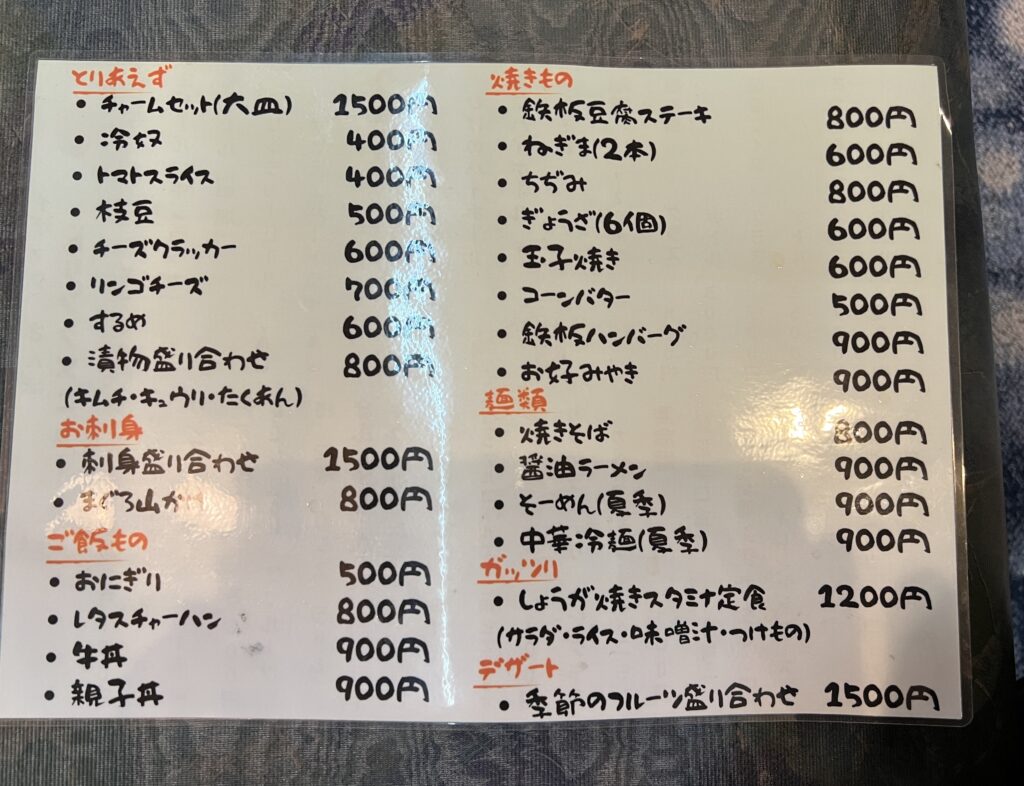 とりあえず
・チャームセット(大皿) 1500円
・冷奴 400円
・トマトスライス 400円
・枝豆 500円
・チーズクラッカー 600円
・リンゴチーズ 700円
・するめ 600円
・漬物盛り合わせ 800円
(キムチ・キュウリ・たくあん)
お刺身
・刺身盛り合わせ 1500円
・まぐろ山かけ 800円
ご飯もの
・おにぎり 500円
・レタスチャーハン 800円
・牛丼 900円
・親子丼 900円
焼きもの
・鉄板豆腐ステーキ 800円
・ねぎま(2本) 600円
・ちぢみ 800円
・ぎょうざ(6個) 600円
・玉子焼き 600円
・コーンバター 500円
・鉄板ハンバーグ 900円
・お好みやき 900円
麺類
・焼きそば 800円
・醤油ラーメン 900円
・そーめん(夏季) 900円
・中華冷麺(夏季) 900円
ガッツリ
・しょうが焼きスタミナ定食 1200円
(サラダ・ライス・味噌汁・つけもの)
デザート
・季節のフルーツ盛り合わせ 1500円